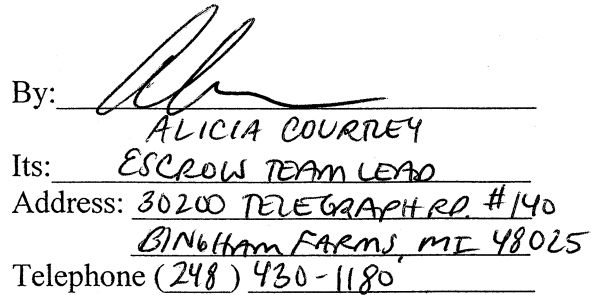 By:
ALICIA COURTLEY
Its: ESCROW TEAM LEAD
Address: 30200 TELEGRAPH RD. #140
BINGHAM FARMS, MI 48025
Telephone (248) 430-1180